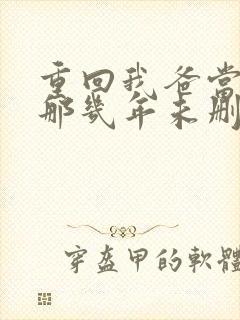 重回我爸当
那几年未删
穿盔甲的軟體